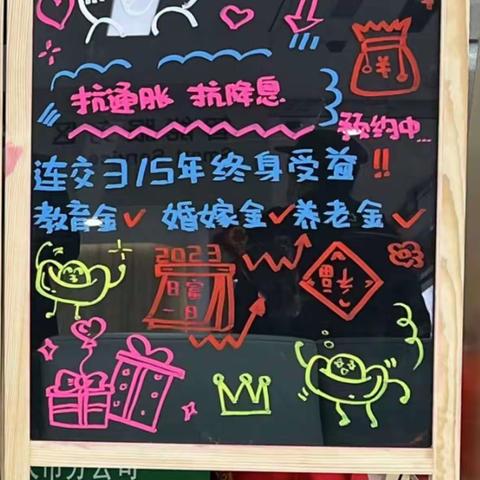 抗通胀 抗降息
预约中...
连交3/5年终身受益!!
教育金✓ 婚嫁金✓养老金✓
2023
日富
一日
福
市分公司